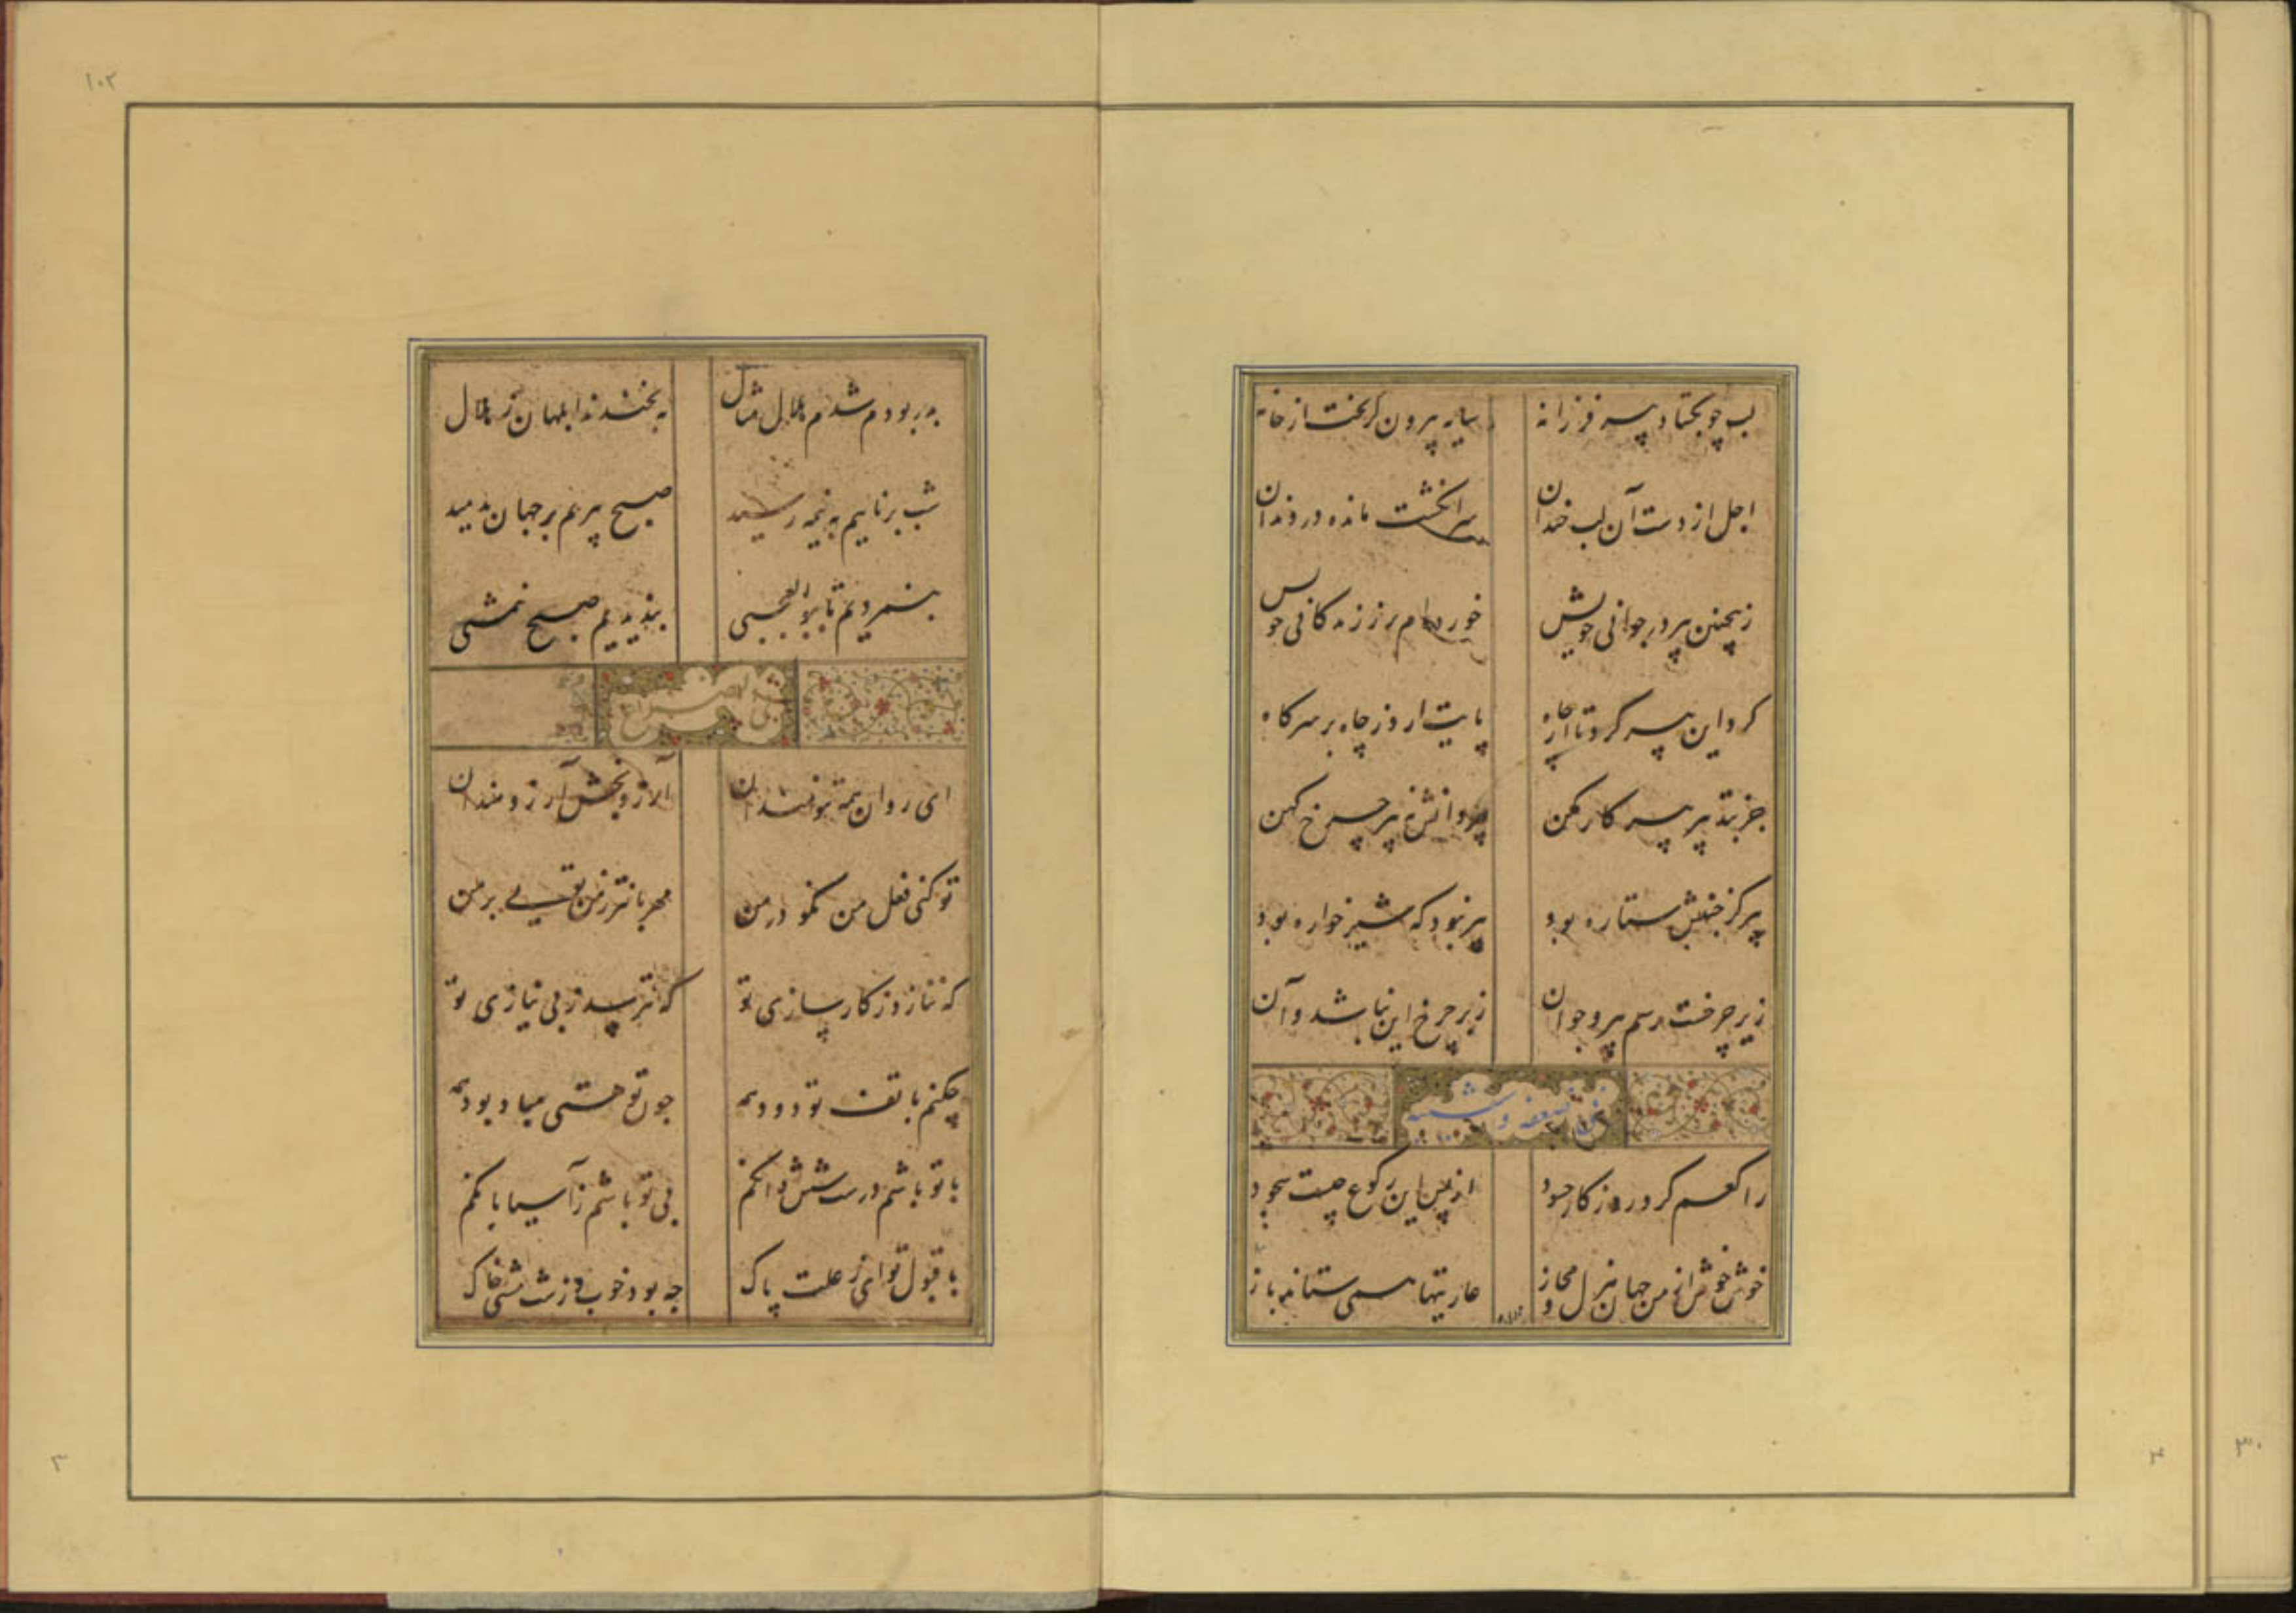 لب چو بگشاد پیر فرزانه
سایه بیرون گریخت از خانه
اجل از دست آن لب خندان
سر انگشت مانده در دندان
زین چنین پیر در جوانی خویش
خورده‌ام بر ز زندگانی خویش
کرد این پیر کرد تا از چاه
پایت ار دز چاه بر سر گاه
جز بتدبیر پیر کار مکن
پیر دانش نه پیر چرخ کهن
پیر کز جنبش ستاره بود
پیر نبود که شیرخواره بود
زیر چرخست رسم پیر و جوان
زبر چرخ این نباشد و آن
راکعم کرد روزگار حسود
از پس این رکوع چیست سجود
خوش خوش از من جهان هزل و مجاز
عاریتها همی ستاند باز
۱۰۲
بدر بودم شدم هلال مثال
بخندند ابلهان ز هلال
شب برناییم به نیمه رسید
صبح پیریم بر جهان بدمید
بشمردیم تا بوالعجبی
بندیدیم صبح نیمشبی
ای روان همه تنومندان
آرزو بخش آرزومندان
تو کنی فعل من نکو در من
مهربانتر ز من تویی بر من
که ننازد ز کارسازی تو
که نترسد ز بی نیازی تو
چکنم با تف تو دود همه
چون تو هستی مباد بود همه
با تو باشم درست شش دانگم
بی تو باشم ز آسیا بانگم
با قبول تو ای ز علت پاک
چه بود خوب و زشت مشتی خاک
۳
۴
۳۰